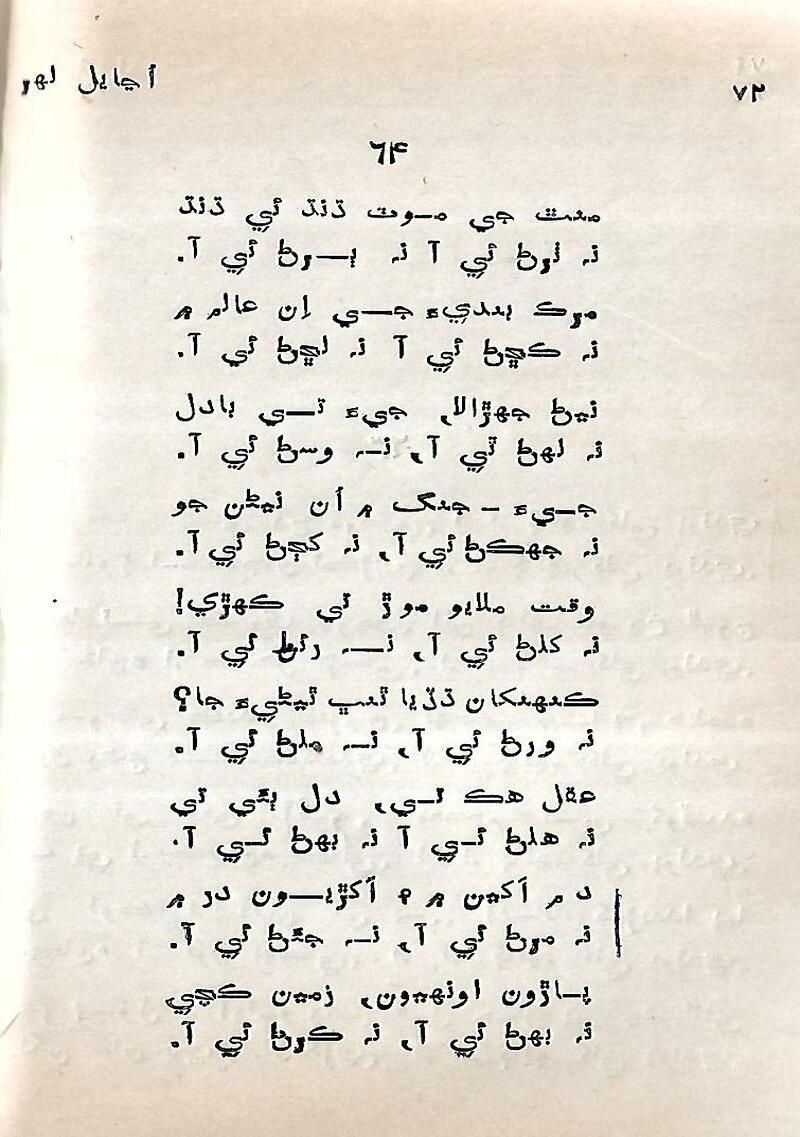 اُڃايل لهر
٧٢
٦۴
جي موت ڌنڌ ئي ڌنڌ
نہ ٺرڻ ئي آ نہ ٻرڻ ئي آ.
مرڪ بنديءَ جي اِن عالم ۾
نہ ڪڇڻ ئي آ نہ لڇڻ ئي آ.
نيڻ جهڙالا، جيءَ تي بادل
نہ لهڻ ئي آ، نہ وسڻ ئي آ.
جيءَ – جنگ ۾ اُن نيڻن جو
نہ جهڪڻ ئي آ، نہ کڄڻ ئي آ.
وقت ملايو موڙ تي ڪهڙي!
نہ کلڻ ئي آ، نہ رئڻ ئي آ.
ڪنهنکان جا؟
نہ ورڻ ئي آ، نہ ملڻ ئي آ.
عقل هڪ تي، دل ٻئي تي
نہ هلڻ ئي آ نہ بهڻ ئي آ.
دم اَکين ۾ ۽ اَکڙيون در ۾
نہ مرڻ ئي آ، نہ جيئڻ ئي آ.
پاڙون اونهيون، زمين ڪچي
نہ بهڻ ئي آ، نہ ڪرڻ ئي آ.